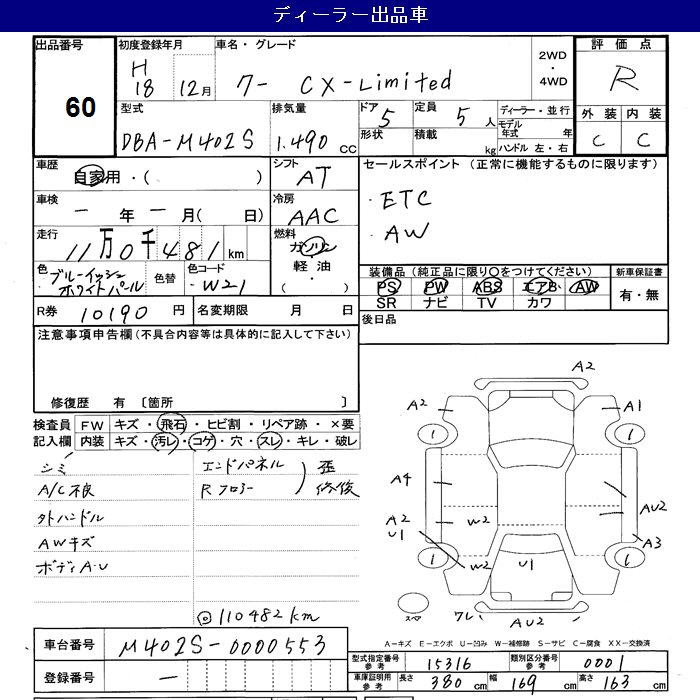 ディーラー出品車
出品番号
60
初度登録年月
H 18 12月
車名・グレード
7- CX-Limited
2WD
・
4WD
評価点
R
型式
DBA-M402S
排気量
1.490 CC
ドア
5
形状
定員
5人
積載
kg
ディーラー・並行
モデル年式 年
ハンドル 左・右
外装
C
内装
C
車歴
自家用・( )
シフト
AT
車検
一 年 一 月( 日)
冷房
AAC
走行
11万0千481km
燃料
ガソリン
軽油
・
( )
色
ブルーイッシュ
ホワイトパール
色替
色コード
W21
R券
10190 円
名変期限 月 日
セールスポイント (正常に機能するものに限ります)
・ETC
・AW
装備品 (純正品に限り○をつけてください)
PS PW ABS エアB AW
SR ナビ TV カワ
新車保証書
有・無
後日品
注意事項申告欄(不具合内容等は具体的に記入して下さい)
修復歴 有 〔箇所 〕
検査員
記入欄
FW キズ・飛石・ヒビ割・リペア跡・×要
内装 キズ・汚レ・コゲ・穴・スレ・キレ・破レ
シミ
A/C不良
外ハンドル
AWキズ
ボディA・U
エンドパネル 歪
Rフロアー 修復
◎110482km
A2
A2
A1
1
1
A4
A2
U1
W2
W2
U1
AU2
A3
1
1
スペア
ワレ
AU2
A-キズ E-エクボ U-凹み W-補修跡 S-サビ C-腐食 XX-交換済
車台番号
M402S-0000553
登録番号
型式指定番号
参考
15316
類別区分番号
参考
0001
車庫証明用
参考
長さ 380 cm 幅 169 cm 高さ 163 cm